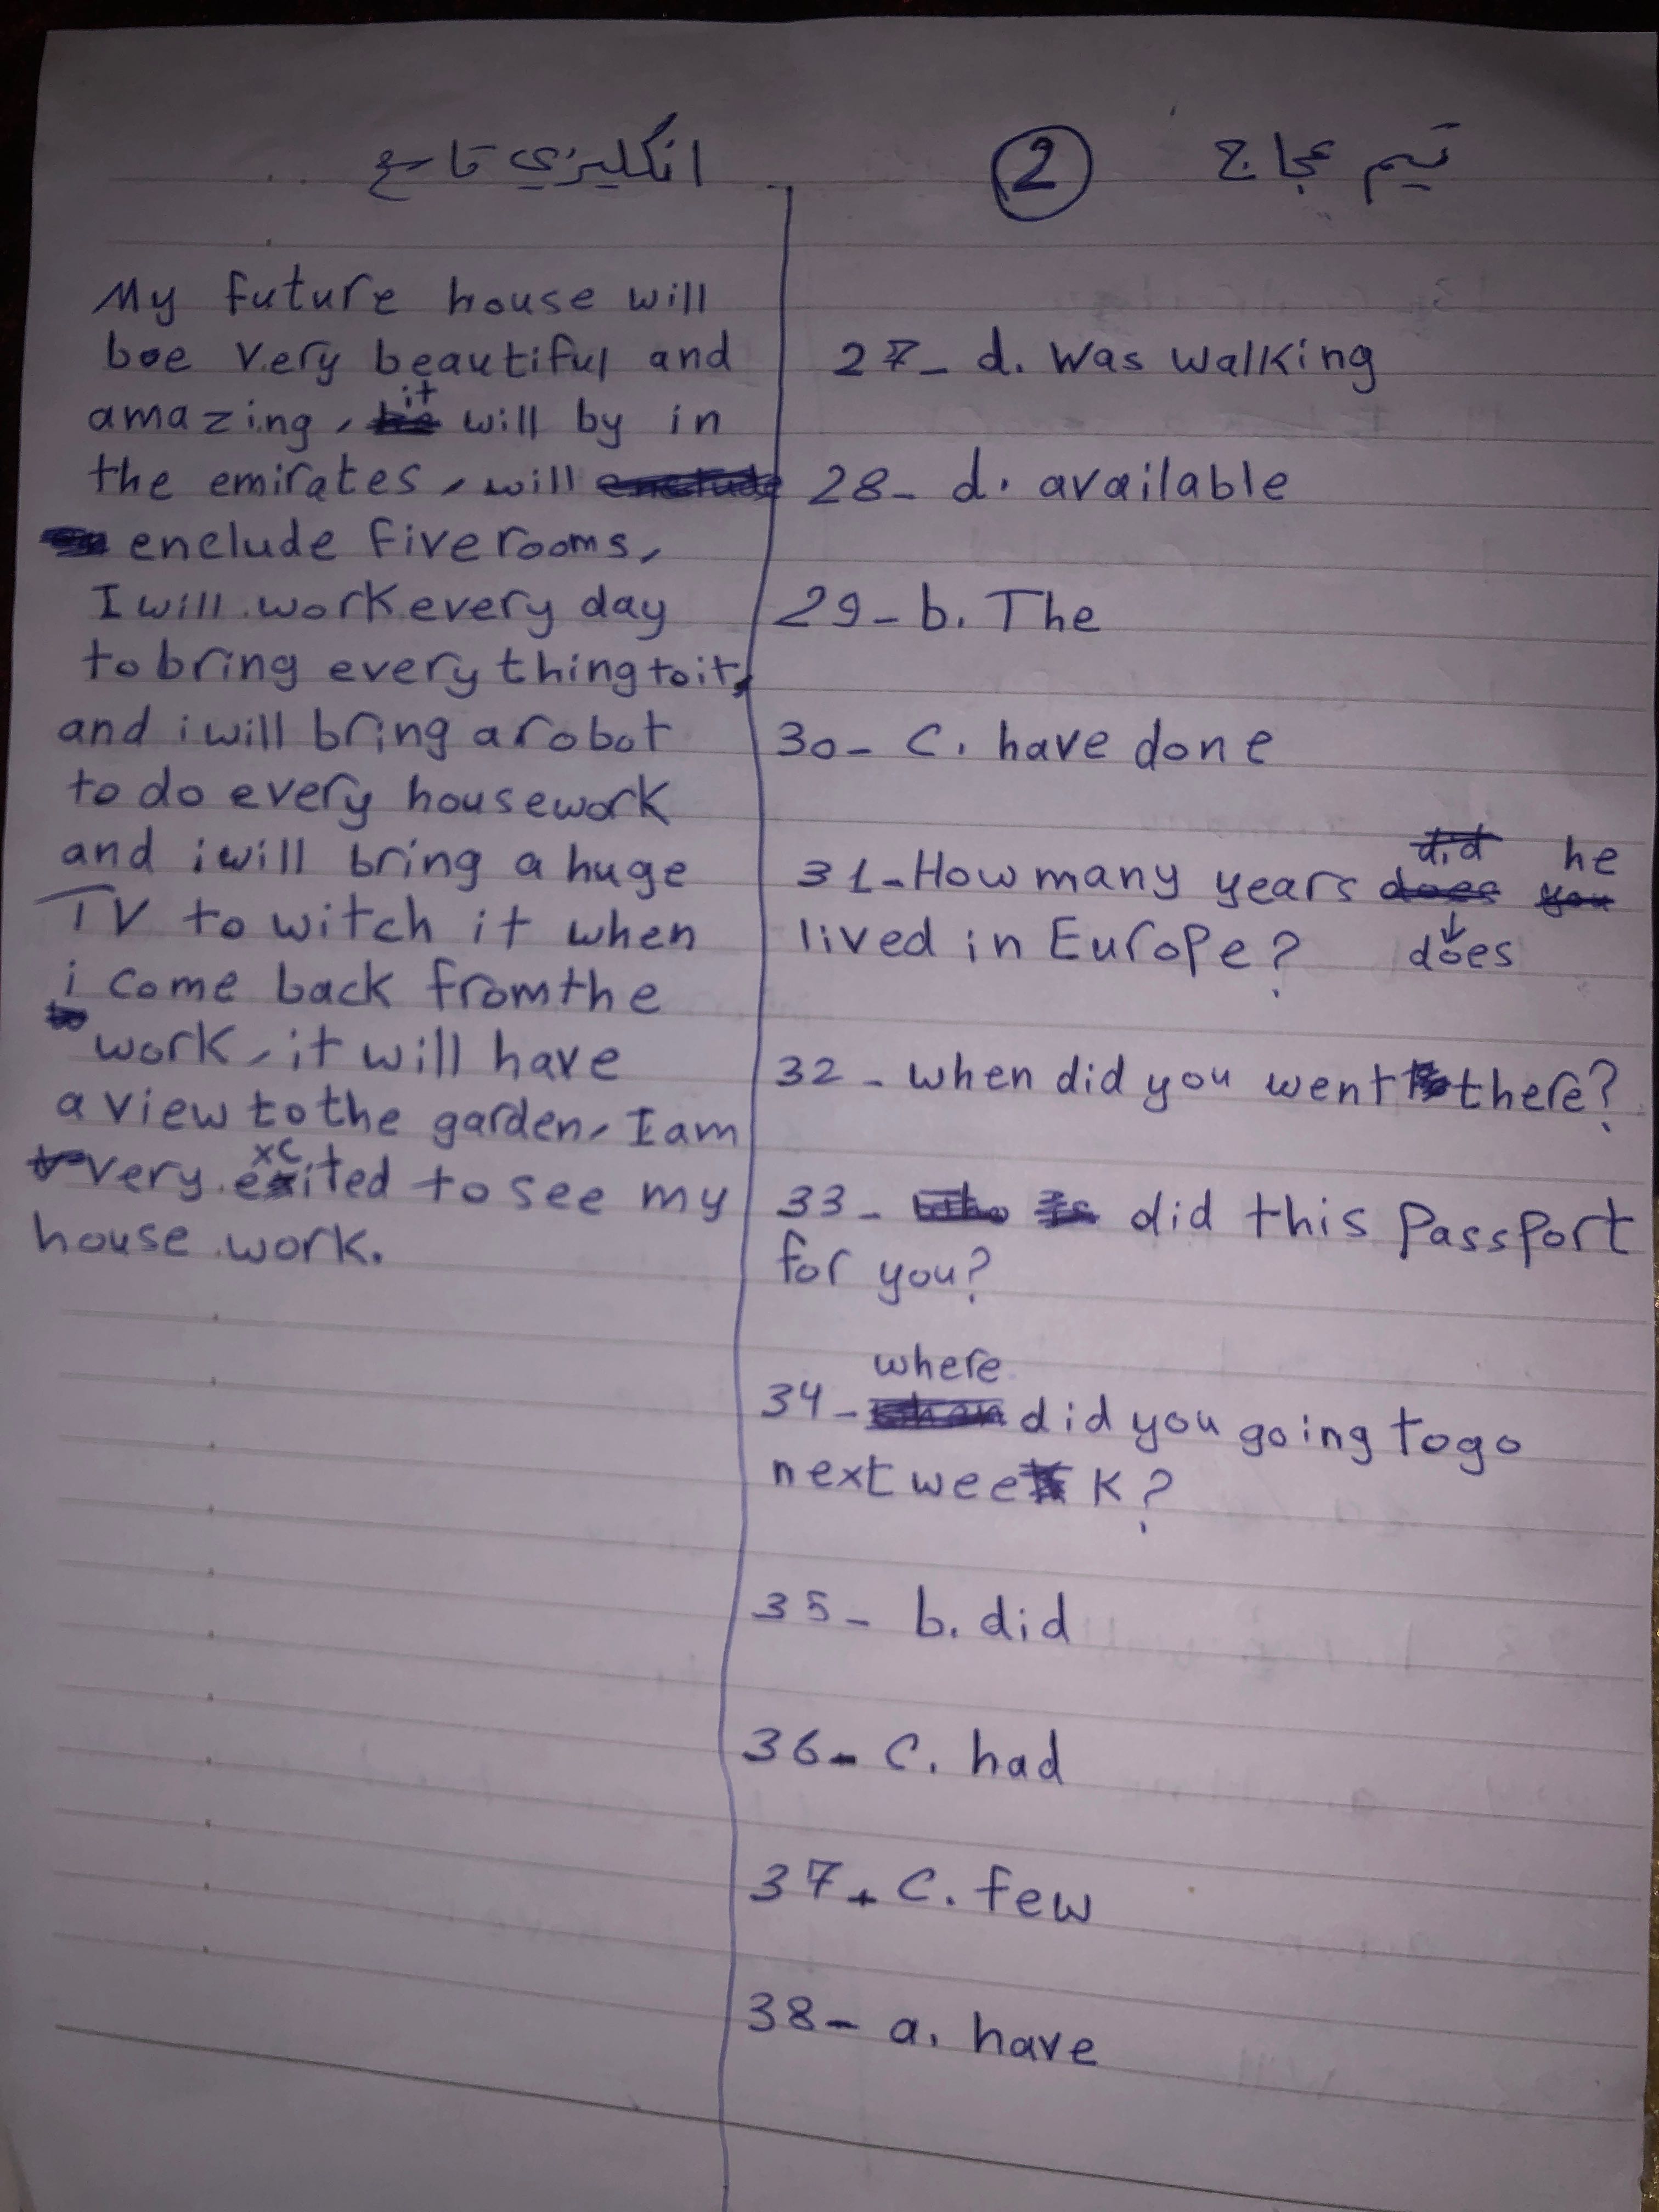 تيم عجاج
2
انكليزي تاسع
27- d. was walking
28- d. available
29- b. The
30- C. have done
did he
31-How many years does you
lived in Europe? does
32- when did you went there?
33- who is did this Passport
for you?
where
34- when did you going to go
next week?
35- b. did
36- C. had
37- C. few
38- a. have
My future house will
be very beautiful and
it
amazing, he will by in
the emirates, will enclude
enclude five rooms,
I will work every day
to bring every thing to it,
and i will bring a robot
to do every housework
and i will bring a huge
TV to witch it when
i come back from the
work, it will have
a view to the garden, I am
very exited to see my
xc
house work.